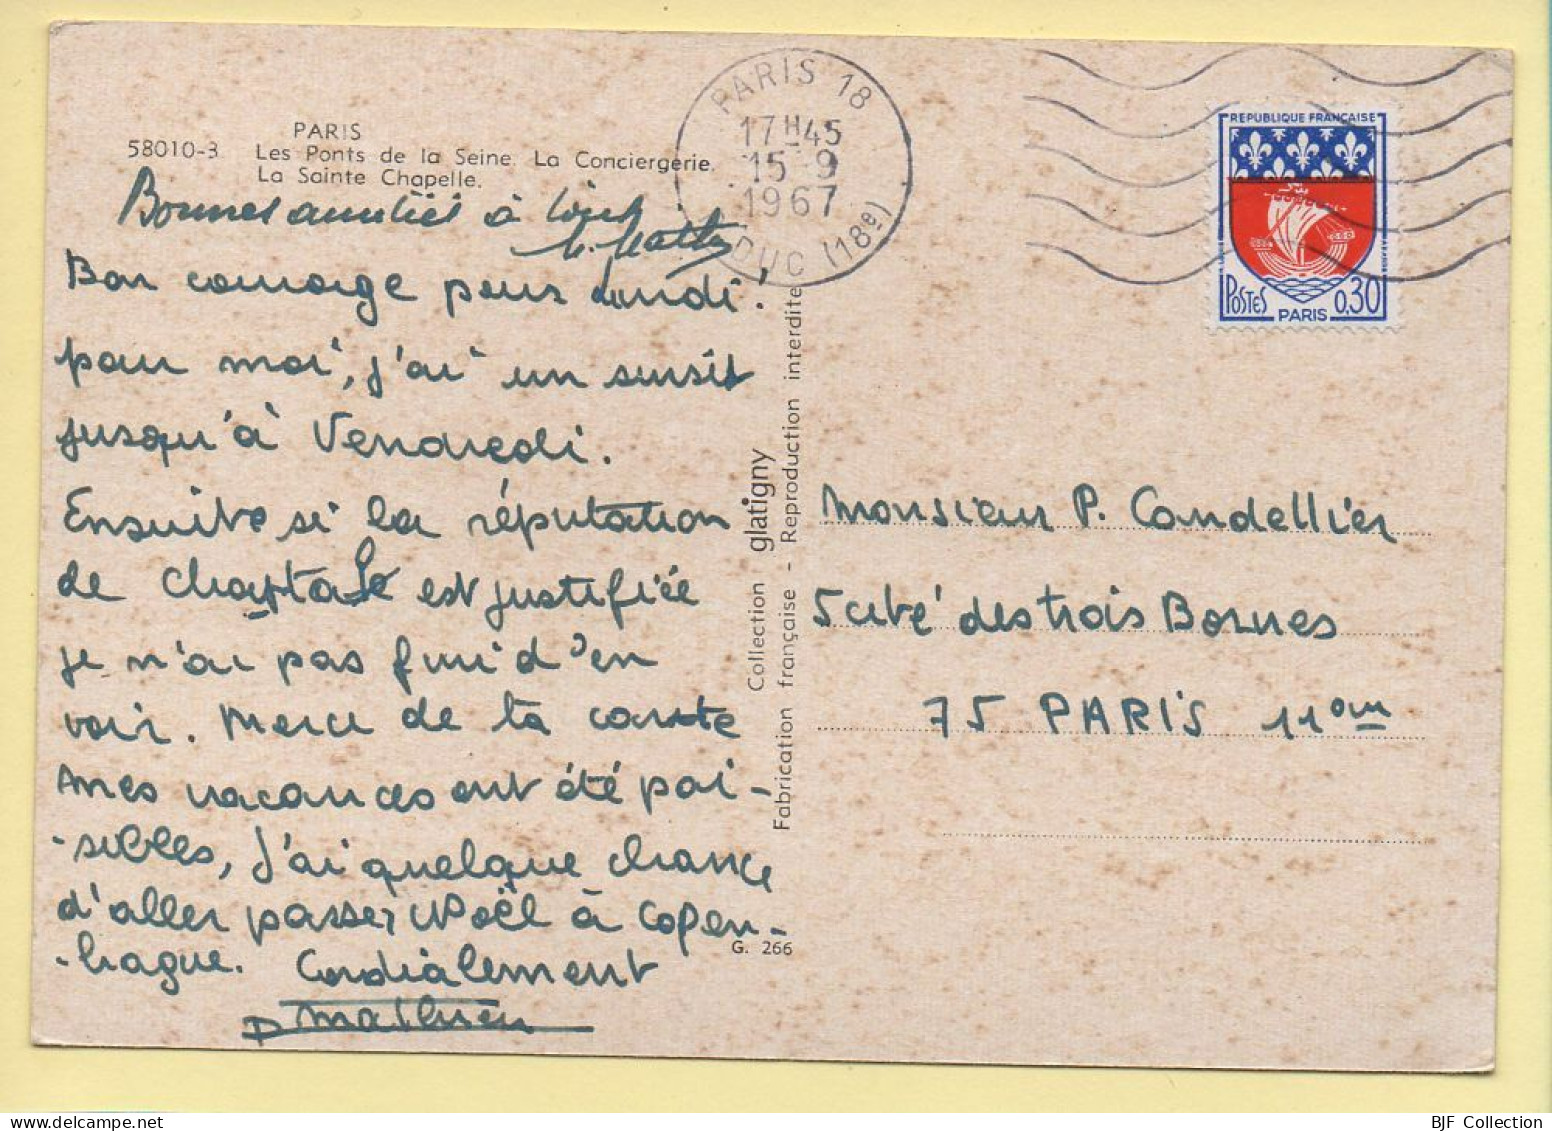 PARIS
58010-3 Les Ponts de la Seine. La Conciergerie.
La Sainte Chapelle.
Bonnes amitiés à
Bon courage pour Lundi!
pour moi, j'ai un sursit
jusqu'à Vendredi.
Ensuite si la réputation
de Chaptale est justifiée
je n'ai pas fini d'en
voir. Merci de ta carte
mes vacances ont été pai-
-sibles, j'ai quelque chance
d'aller passer Noël à Copen-
-hague. Cordialement
Mathieu
G. 266
Collection glatigny
Fabrication française - Reproduction interdite
PARIS 18
17H45
15-9
1967
DUC (18e)
REPUBLIQUE FRANÇAISE
POSTES PARIS 0,30
Monsieur P. Candellier
5 cité des trois Bornes
75 PARIS 11eme
BJF Collection